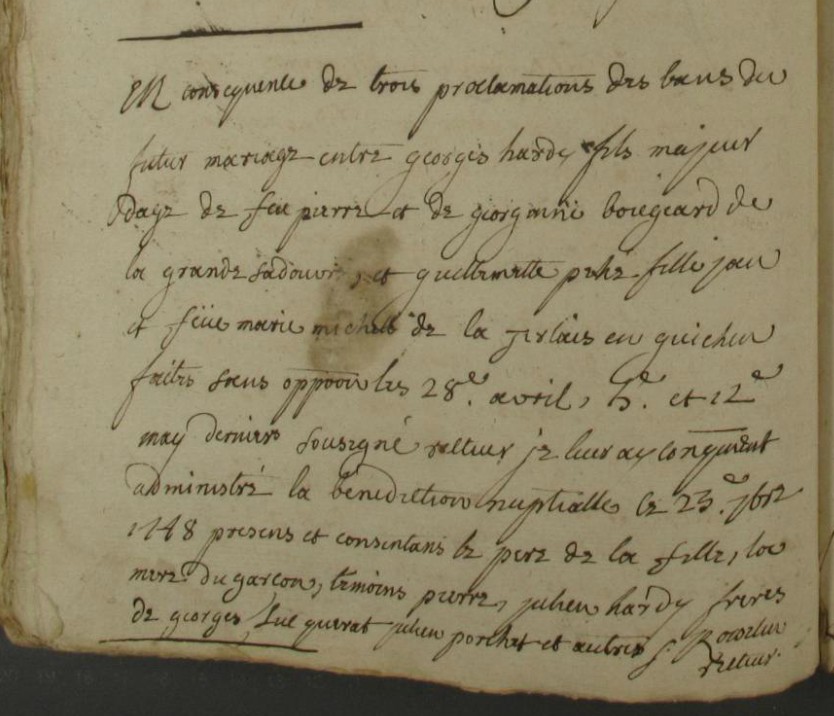 En consequence de trois proclamations des bans du
futur mariage entre georges hardy fils majeur
Dage de feu pierre et de giorginne bougeard de
la grande et guillemette fille jan
et feüe marie michel de la en guichen
faites sans oppoon les 28e. avril, 5e. et 12e
may derniers sousigné recteur je leur ay conqument
administré la benediction nuptialle le 23e. 7bre
1748 presens et consentans le pere de la fille, la
mere du garcon, témoins pierre, julien hardy freres
de georges, Luc julien porchet et autres
recteur.